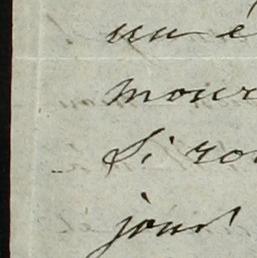 un é
mour
Si ro
jour